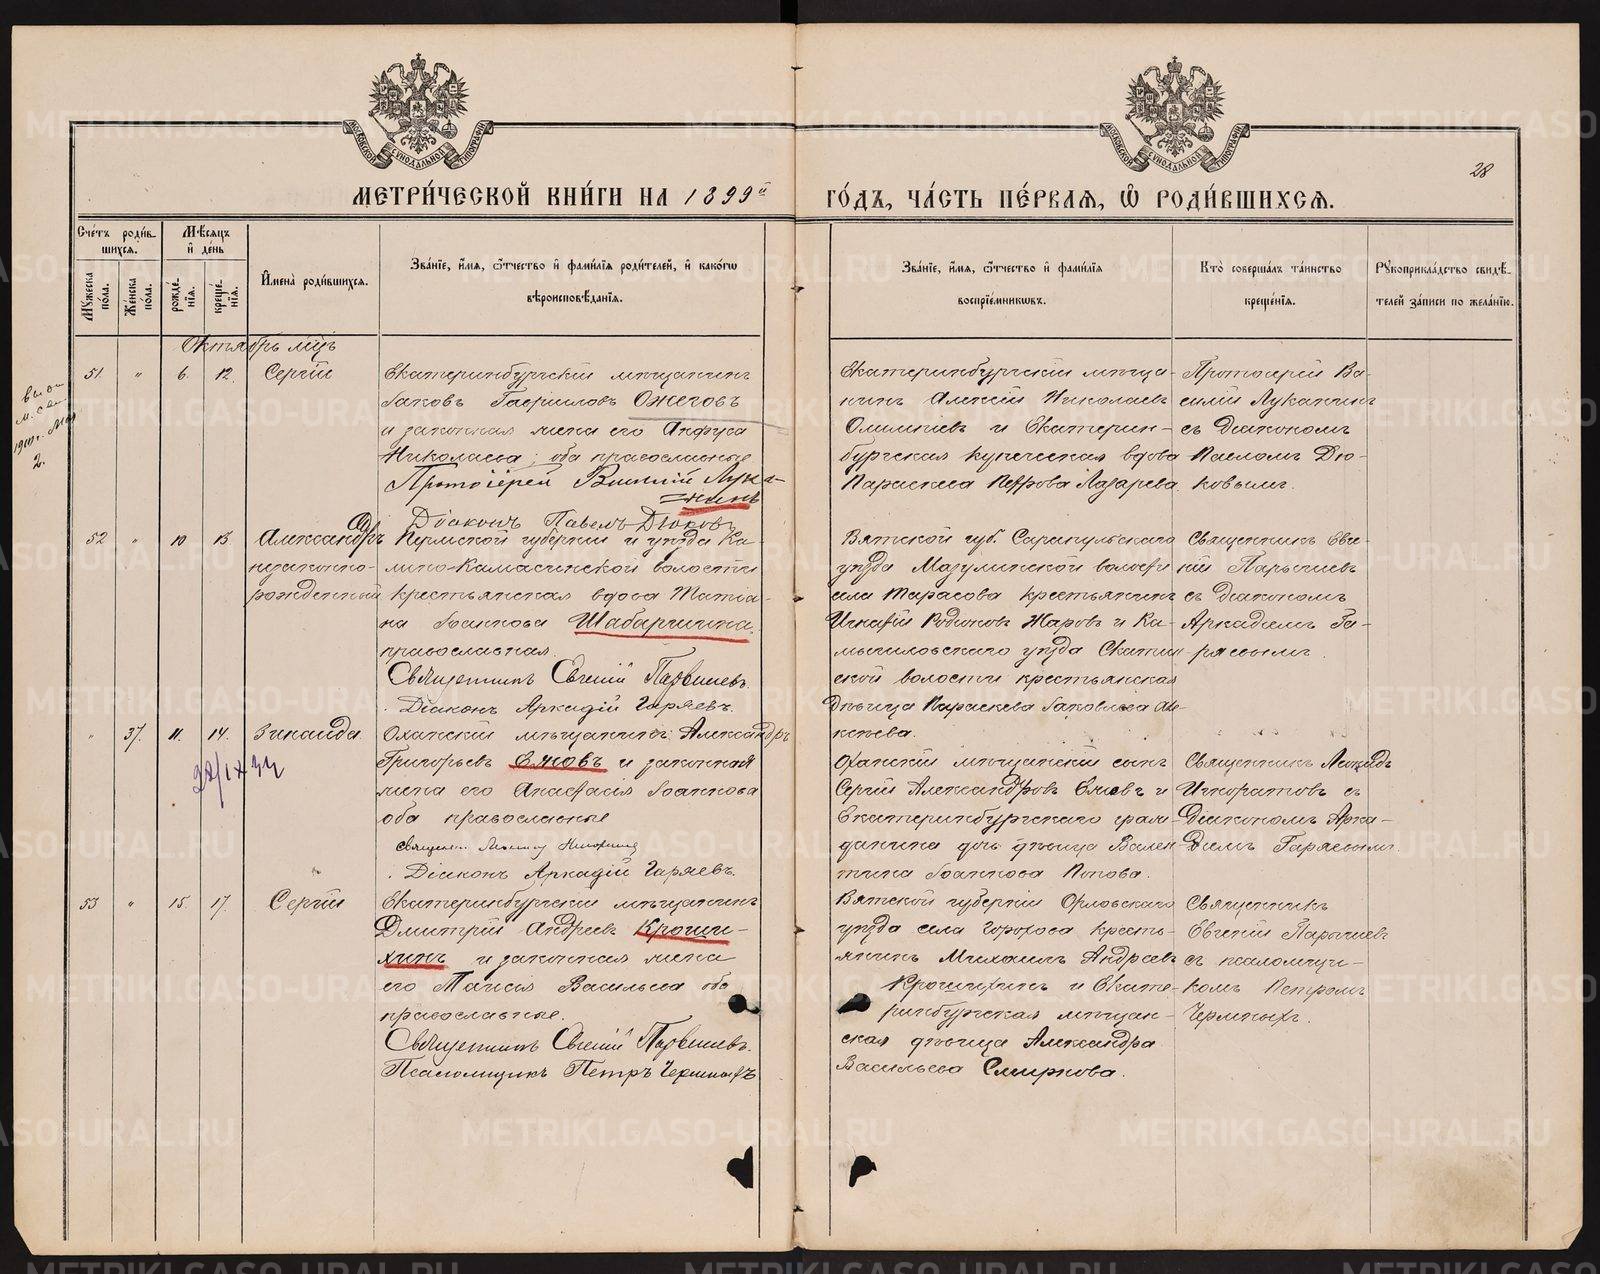 МЕТРИ́ЧЕСКОЙ КНИ́ГИ НА 1899й
ГО́ДЪ, ЧА́СТЬ ПЕ́РВАѦ, Ѿ РОДИ́ВШИХСѦ.
28
Сче́тъ роди́в-
шихсѧ.
Мꙋ́жеска по́ла.
Же́нска по́ла.
Мѣ́сѧцъ и де́нь
рожде́нїѧ.
креще́нїѧ.
Имена̀ роди́вшихсѧ.
Зва́нїе, и́мѧ, ѻ́тчество и фами́лїѧ роди́телей, и како́гѡ
вѣроисповѣ́данїѧ.
Зва́нїе, и́мѧ, ѻ́тчество и фами́лїѧ
воспрїе́мникѡвъ.
Кто̀ соверша́лъ та́инство
креще́нїѧ.
Рꙋкоприкла́дство свидѣ́-
телей за́писи по жела́нїю.
Октябрь мцъ
51. " 6. 12. Сергій
Екатеринбургскій мѣщанинъ
Іаковъ Гавриловъ Ожеговъ
и законная жена его Анфуса
Николаева; оба православные
Протоіерей Василій Лука-
нинъ
Діаконъ Павелъ Дюковъ
Екатеринбургскій мѣща-
нинъ Алексій Николаевъ
Олимпіевъ и Екатерин-
бургская купеческая вдова
Параскева Петрова Лазарева.
Протоіерей Ва-
силій Луканинъ
съ Діакономъ
Павломъ Дю-
ковымъ.
2.
52 " 10 13. Александръ
незаконно-
рожденный
Пермской губерніи и уѣзда Ка-
лино-Камасинской волости
крестьянская вдова Татіа-
на Іоаннова Шабаршина,
православная.
Священникъ Евгеній Парышевъ.
Діаконъ Аркадій Гаряевъ.
Вятской губ. Сарапульскаго
уѣзда Мазунинской волости
села Тарасова крестьянинъ
Игнатій Родіоновъ Жаровъ и Ка-
мышловскаго уѣзда Скатин-
ской волости крестьянская
дѣвица Параскева Іаковлева Ав-
ксева.
Священникъ Евге-
ній Парышевъ
съ Діакономъ
Аркадіемъ Га-
ряевымъ.
" 37. 11. 14. Зинаида
Оханскій мѣщанинъ Александръ
Григорьевъ Ежовъ и законная
жена его Анастасія Іоаннова
оба православные
Діаконъ Аркадій Гаряевъ.
Оханскій мѣщанскій сынъ
Сергій Александровъ Ежовъ и
Екатеринбургскаго граж-
данина дочь дѣвица Вален-
тина Іоаннова Попова.
Священникъ Леонидъ
Игноратовъ съ
Діакономъ Арка-
діемъ Гаряевымъ.
53 " 15. 17. Сергій
Екатеринбургскій мѣщанинъ
Дмитрій Андреевъ Кроши-
хинъ и законная жена
его Таисія Васильева оба
православные.
Священникъ Евгеній Парышевъ.
Псаломщикъ Петръ Черныхъ
Вятской губерніи Орловскаго
уѣзда села Горохова кресть-
янинъ Михаилъ Андреевъ
Крошихинъ и Екате-
ринбургская мѣщан-
ская дѣвица Александра
Васильева Смирнова.
Священникъ
Евгеній Парышевъ
съ псаломщи-
комъ Петромъ
Черныхъ.
METRIKI.GASO-URAL.RU